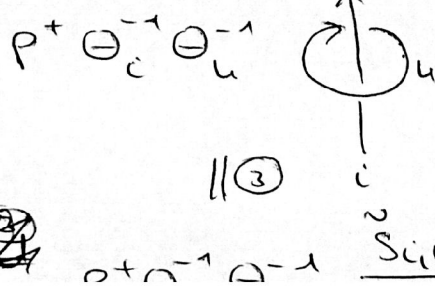 p⁺ Θᵢ⁻¹ Θᵤ⁻¹
u
|| ③ i
p⁺ Θ⁻¹ Θ⁻¹